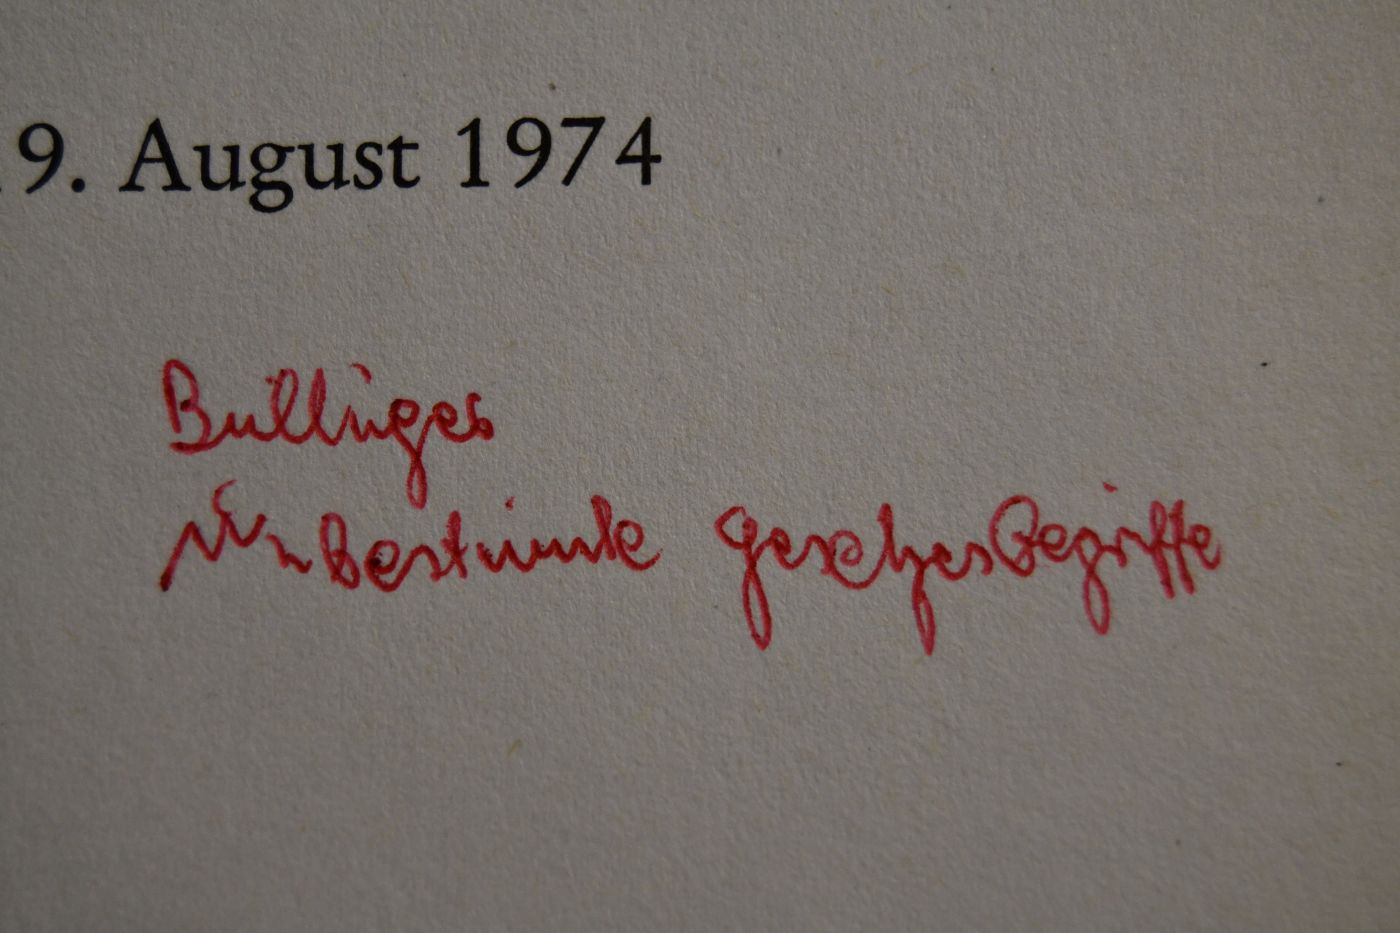 19. August 1974
Bullinger
Unbestimmte Gesetzesbegriffe